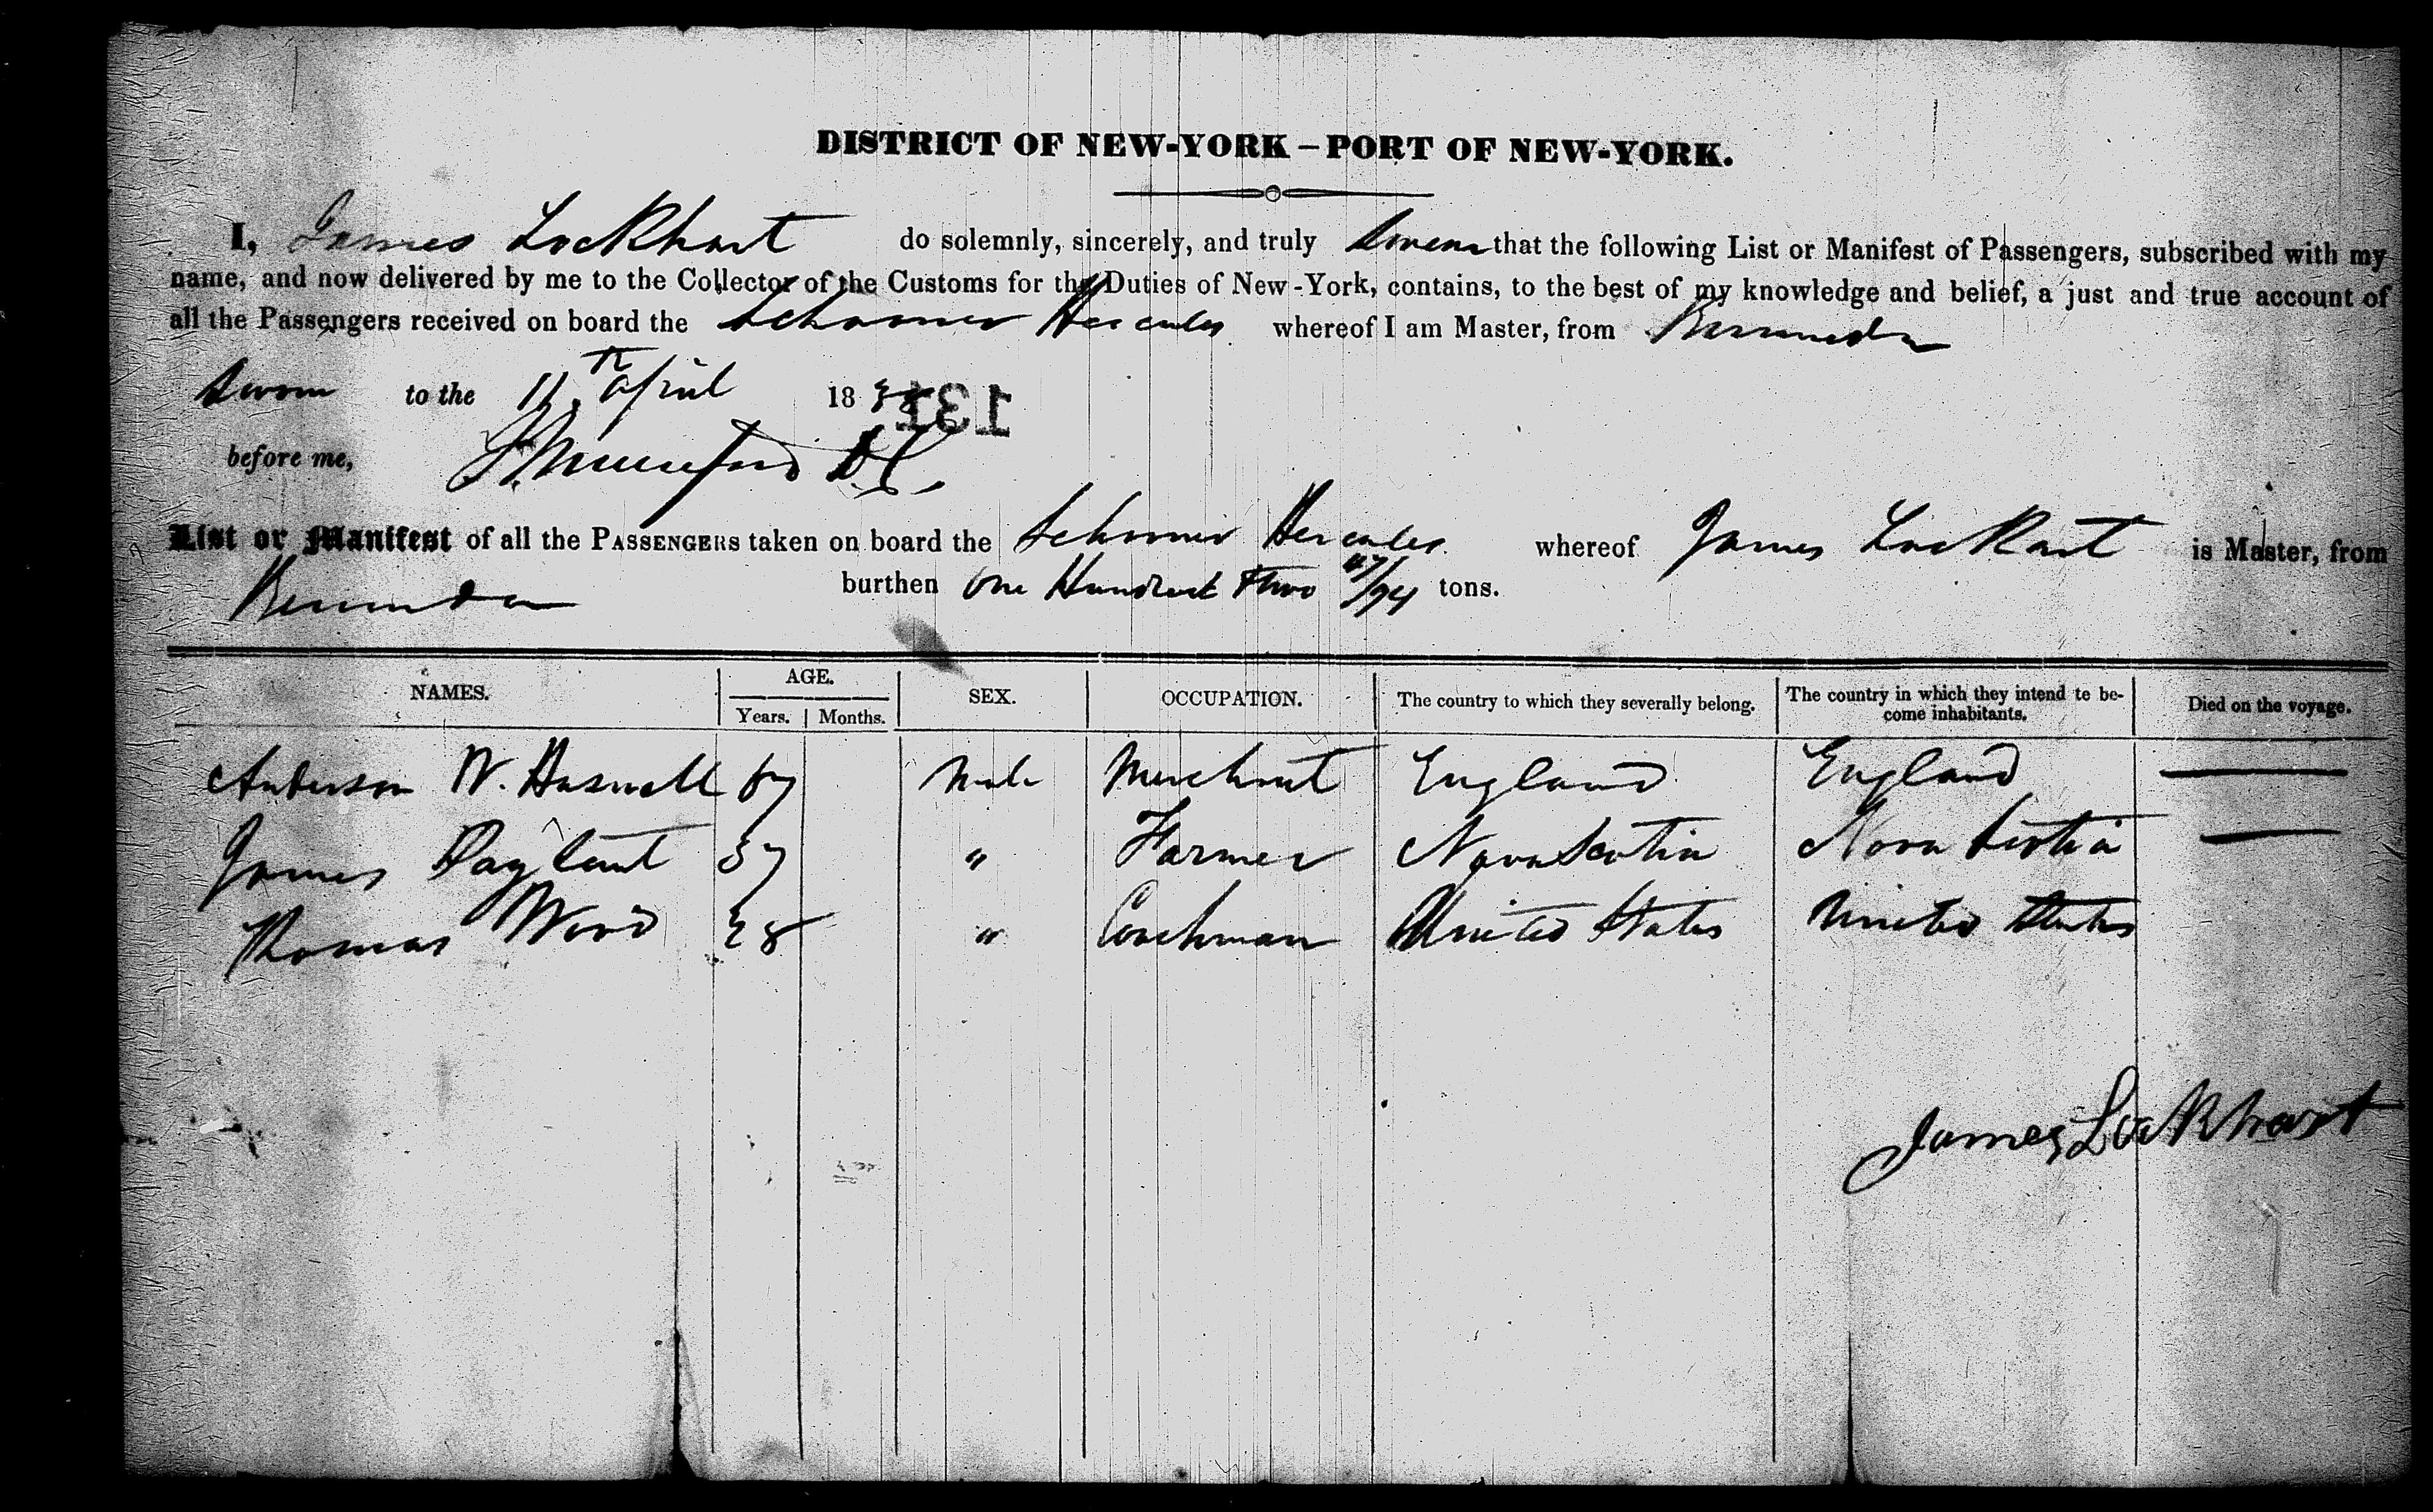 DISTRICT OF NEW-YORK – PORT OF NEW-YORK.
I, James Lockhart do solemnly, sincerely, and truly swear that the following List or Manifest of Passengers, subscribed with my
name, and now delivered by me to the Collector of the Customs for the Duties of New-York, contains, to the best of my knowledge and belief, a just and true account of
all the Passengers received on board the Schooner Hercules whereof I am Master, from Bermuda
Sworn to the 11th April 18
131
before me,
List or Manifest of all the PASSENGERS taken on board the Schooner Hercules whereof James Lockhart is Master, from
Bermuda burthen One Hundred Two 47/94 tons.
NAMES. AGE. SEX. OCCUPATION. The country to which they severally belong. The country in which they intend te become inhabitants. Died on the voyage.
Years. Months.
Anderson W. Male Merchant England England —
James 37 " Farmer Nova Scotia Nova Scotia —
Thomas Wood 28 " Coachman United States United States
James Lockhart